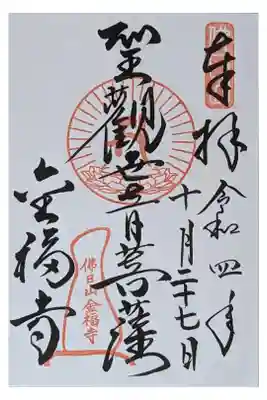 奉拝
令和四年
十月二十七日
聖觀世音菩薩
金福寺
佛日山
金福寺